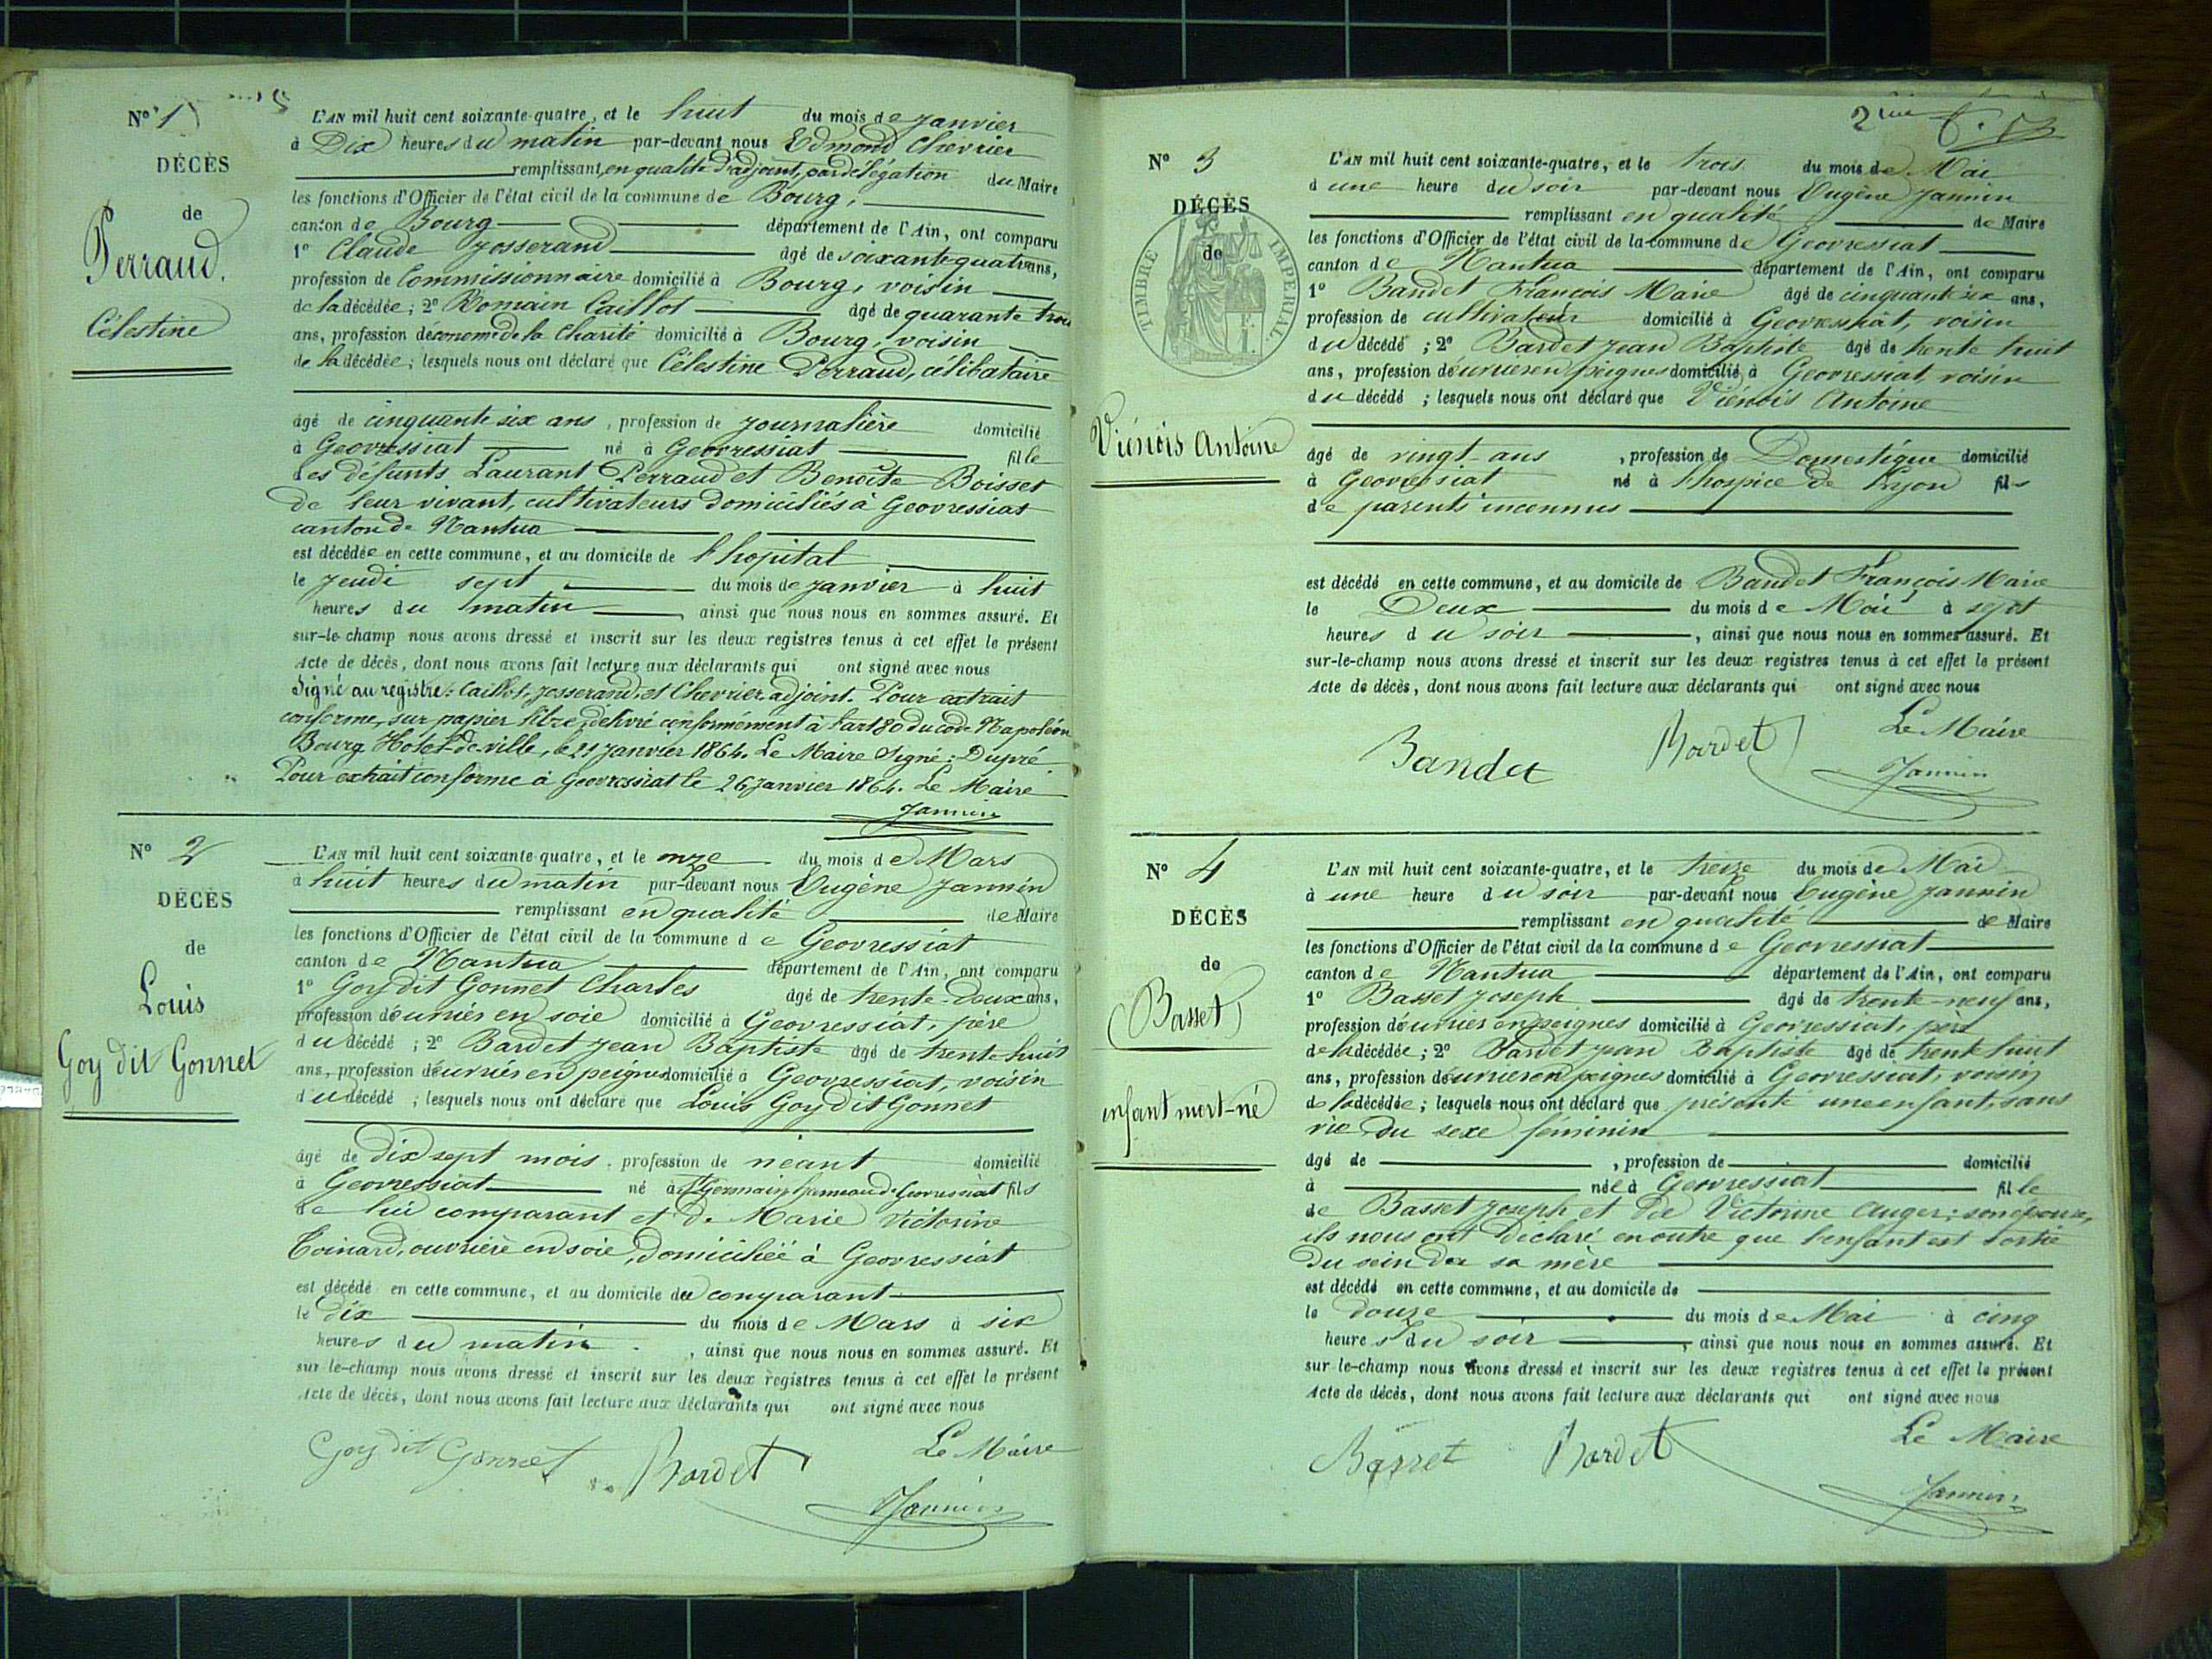 N° 1
DÉCÈS
de
Perraud,
Célestine
L'AN mil huit cent soixante-quatre, et le huit du mois de Janvier
à Dix heures du matin par-devant nous Edmond Chevrier
remplissant, en qualité d'adjoint, par délégation du Maire
les fonctions d'Officier de l'état civil de la commune de Bourg,
canton de Bourg département de l'Ain, ont comparu
1° Claude Josserand âgé de soixante quatre ans,
profession de Commissionnaire domicilié à Bourg, voisin
de la décédée ; 2° Romain Caillot âgé de quarante trois
ans, profession d'économe de la Charité domicilié à Bourg, voisin
de la décédée ; lesquels nous ont déclaré que Célestine Perraud, célibataire
âgé de cinquante six ans, profession de journalière domicilié
à Geovressiat né à Geovressiat fille
des défunts Laurant Perraud et Benoîte Boisset
de leur vivant, cultivateurs domiciliés à Geovressiat
canton de Nantua
est décédée en cette commune, et au domicile de l'hopital
le jeudi sept du mois de janvier à huit
heures du matin ainsi que nous nous en sommes assuré. Et
sur-le-champ nous avons dressé et inscrit sur les deux registres tenus à cet effet le présent
Acte de décès, dont nous avons fait lecture aux déclarants qui ont signé avec nous
Signé au registre : Caillot, Josserand, et Chevrier adjoint. Pour extrait
conforme, sur papier libre, délivré conformément à l'art 80 du code Napoléon
Bourg Hôtel de ville, le 21 Janvier 1864. Le Maire Signé : Dupré
Pour extrait conforme à Geovressiat le 26 Janvier 1864. Le Maire
Jannin
N° 2
DÉCÈS
de
Louis
Goy dit Gonnet
L'AN mil huit cent soixante-quatre, et le onze du mois de Mars
à huit heures du matin par-devant nous Eugène Jannin
remplissant en qualité de Maire
les fonctions d'Officier de l'état civil de la commune de Geovressiat
canton de Nantua département de l'Ain, ont comparu
1° Goy dit Gonnet Charles âgé de trente-deux ans,
profession d'ouvrier en soie domicilié à Geovressiat, père
du décédé ; 2° Bardet Jean Baptiste âgé de trente-huit
ans, profession d'ouvrier en peignes domicilié à Geovressiat, voisin
du décédé ; lesquels nous ont déclaré que Louis Goy dit Gonnet
âgé de dix sept mois, profession de néant domicilié
à Geovressiat né à St Germain hameau de Geovressiat fils
de lui comparant et de Marie Victorine
Coinard, ouvrière en soie, domiciliée à Geovressiat
est décédé en cette commune, et au domicile du comparant
le dix du mois de Mars à six
heures du matin, ainsi que nous nous en sommes assuré. Et
sur-le-champ nous avons dressé et inscrit sur les deux registres tenus à cet effet le présent
Acte de décès, dont nous avons fait lecture aux déclarants qui ont signé avec nous
Goy dit Gonnet Bardet Le Maire
Jannin
2me
N° 3
DÉCÈS
de
TIMBRE IMPÉRIAL
Viénois Antoine
L'AN mil huit cent soixante-quatre, et le trois du mois de Mai
à une heure du soir par-devant nous Eugène Jannin
remplissant en qualité de Maire
les fonctions d'Officier de l'état civil de la commune de Geovressiat
canton de Nantua département de l'Ain, ont comparu
1° Bandet François Marie âgé de cinquante six ans,
profession de cultivateur domicilié à Geovressiat, voisin
du décédé ; 2° Bardet Jean Baptiste âgé de trente huit
ans, profession d'ouvrier en peignes domicilié à Geovressiat, voisin
du décédé ; lesquels nous ont déclaré que Viénois Antoine
âgé de vingt-ans, profession de Domestique domicilié
à Geovressiat né à l'hospice de Lyon fils
de parents inconnus
est décédé en cette commune, et au domicile de Bandet François Marie
le Deux du mois de Mai à sept
heures du soir, ainsi que nous nous en sommes assuré. Et
sur-le-champ nous avons dressé et inscrit sur les deux registres tenus à cet effet le présent
Acte de décès, dont nous avons fait lecture aux déclarants qui ont signé avec nous
Bandet Bardet Le Maire
Jannin
N° 4
DÉCÈS
de
Basset
enfant mort-né
L'AN mil huit cent soixante-quatre, et le treize du mois de Mai
à une heure du soir par-devant nous Eugène Jannin
remplissant en qualité de Maire
les fonctions d'Officier de l'état civil de la commune de Geovressiat
canton de Nantua département de l'Ain, ont comparu
1° Basset Joseph âgé de trente-neuf ans,
profession d'ouvrier en peignes domicilié à Geovressiat, père
de la décédée ; 2° Bardet Jean Baptiste âgé de trente huit
ans, profession d'ouvrier en peignes domicilié à Geovressiat, voisin
de la décédée ; lesquels nous ont déclaré que présenté une enfant, sans
vie du sexe féminin
âgé de, profession de domicilié
à née à Geovressiat fille
de Basset Joseph et de Victorine Auger, son épouse,
ils nous ont déclaré en outre que l'enfant est sortie
du sein de sa mère
est décédé en cette commune, et au domicile de
le douze du mois de Mai à cinq
heures du soir, ainsi que nous nous en sommes assuré. Et
sur le-champ nous avons dressé et inscrit sur les deux registres tenus à cet effet le présent
Acte de décès, dont nous avons fait lecture aux déclarants qui ont signé avec nous
Basset Bardet Le Maire
Jannin